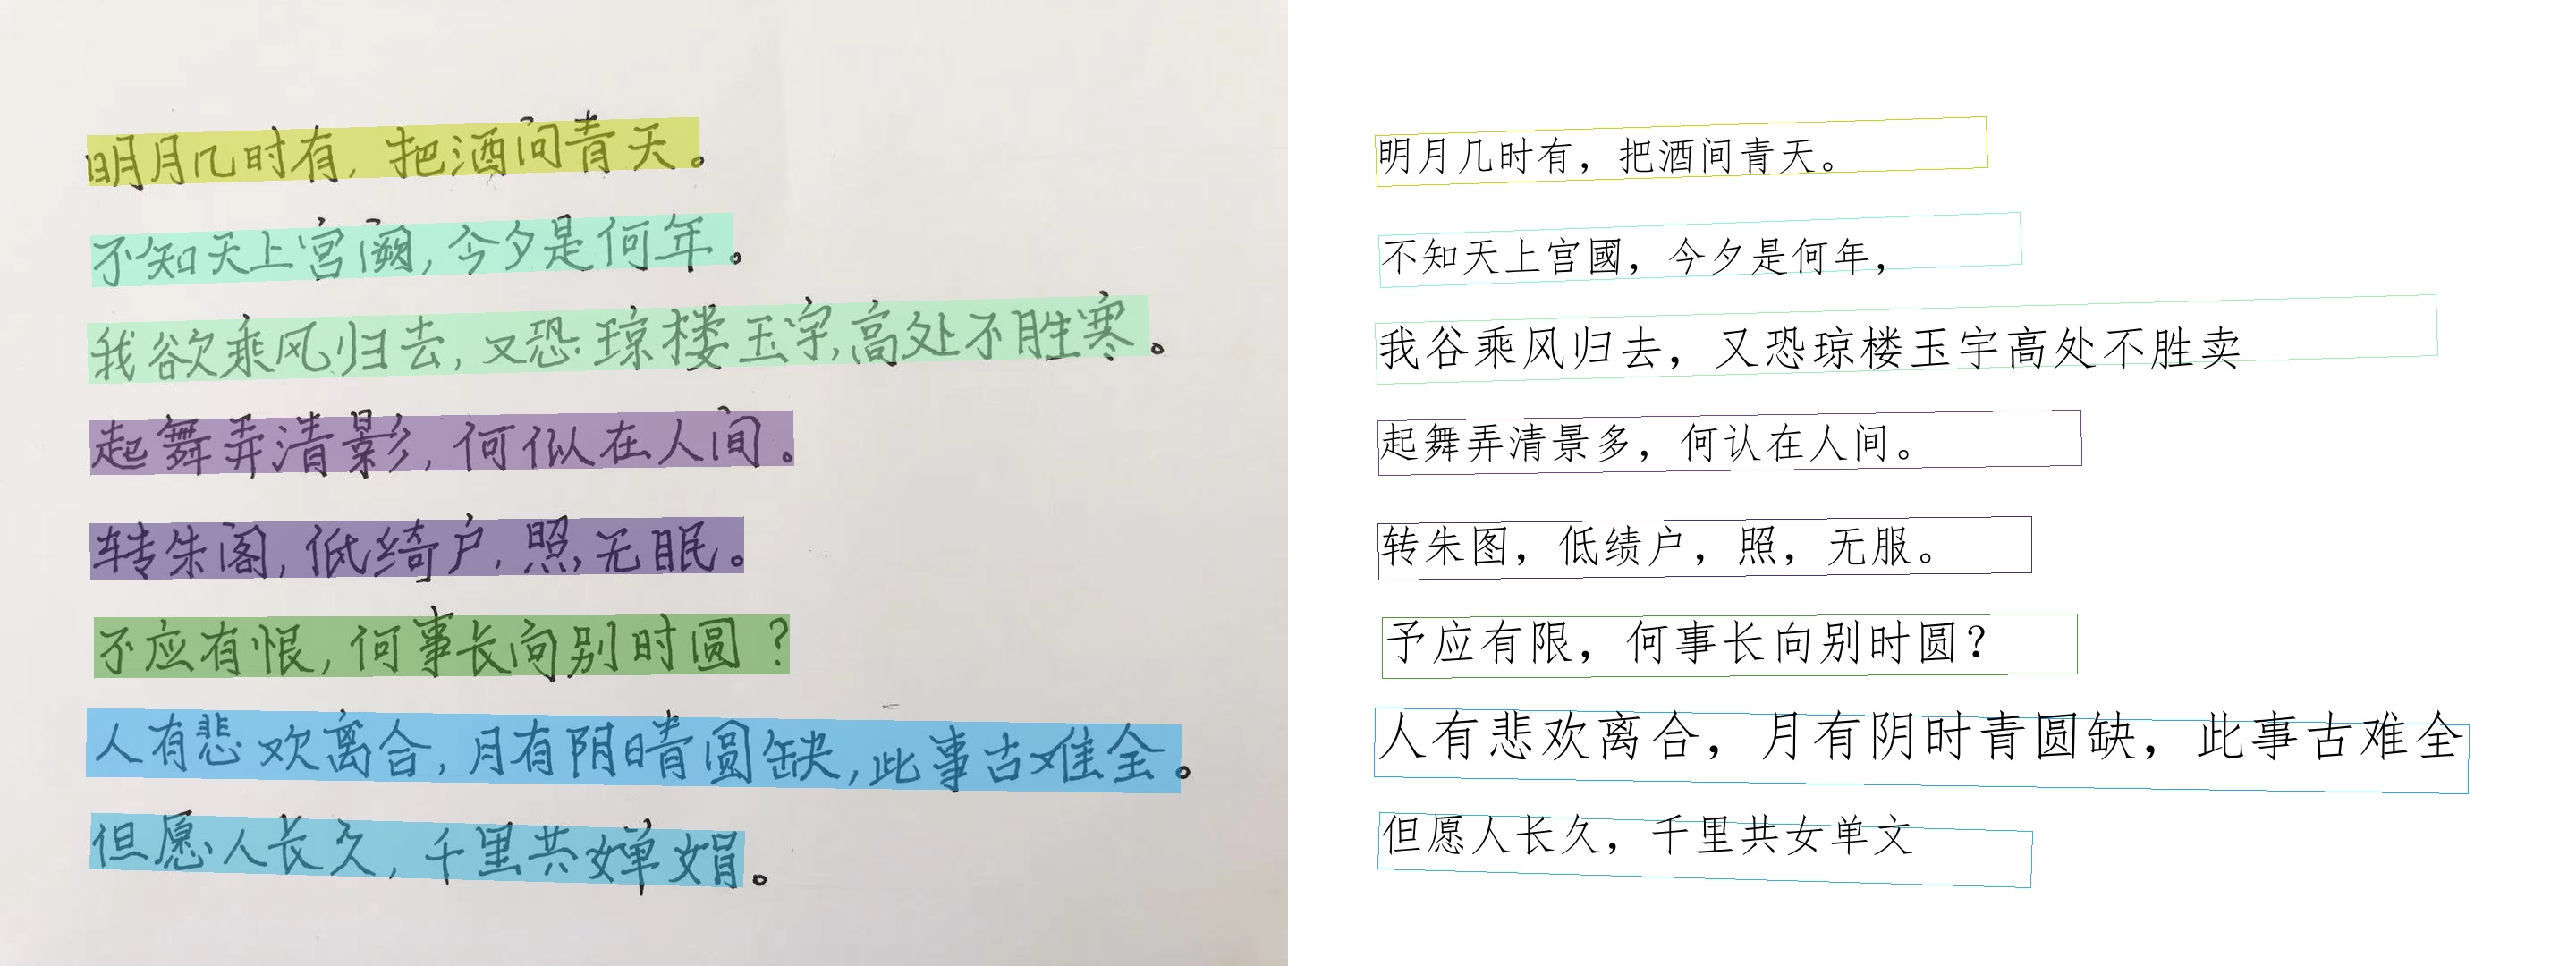 明月几时有，把酒问青天。
不知天上宫阙，今夕是何年。
我欲乘风归去，又恐琼楼玉宇，高处不胜寒。
起舞弄清影，何似在人间。
转朱阁，低绮户，照无眠。
不应有恨，何事长向别时圆？
人有悲欢离合，月有阴晴圆缺，此事古难全。
但愿人长久，千里共婵娟。
明月几时有，把酒间青天。
不知天上宫國，今夕是何年，
我谷乘风归去，又恐琼楼玉宇高处不胜卖
起舞弄清景多，何认在人间。
转朱图，低绩户，照，无服。
予应有限，何事长向别时圆？
人有悲欢离合，月有阴时青圆缺，此事古难全
但愿人长久，千里共女单文